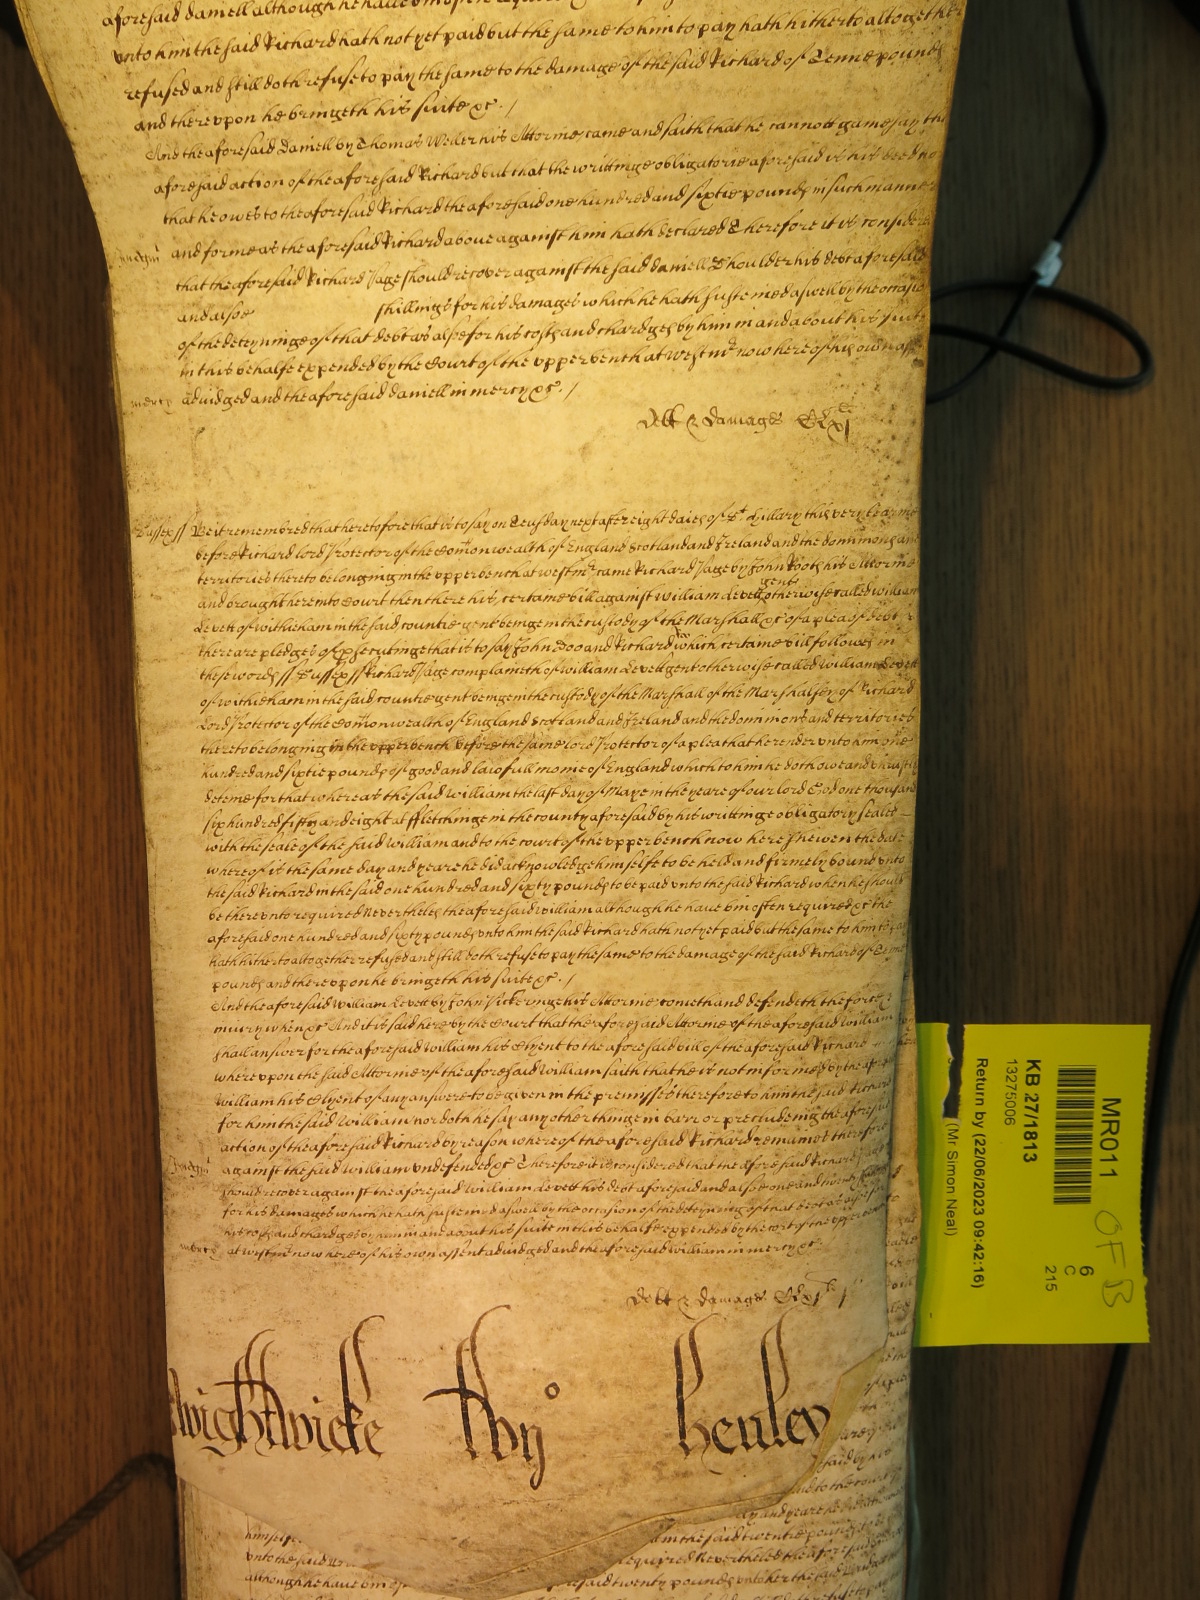 aforesaid daniell although he have bin often required
unto him the said Richard hath not yet paid but the same to him to pay hath hitherto altogether
refused and still doth refuse to pay the same to the damage of the said Richard of Tenne pounds
and thereupon he bringeth his suite &c. /
And the aforesaid daniell by Thomas Weller his Attorne came and saith that he cannott gainesay the
aforesaid action of the aforesaid Richard but that the writtinge obligatorie aforesaid is his deed
that he owes to the aforesaid Richard the aforesaid one hundred and sixtie pounds in such manner
and forme as the aforesaid Richard above against him hath declared Therefore it is considered
that the aforesaid Richard Page should recover against the said daniell Shoulder his debt aforesaid
and alsoe shillings for his damages which he hath susteined aswell by the occasion
of the deteyninge of that debt as alsoe for his costs and chardges by him in and about his suit
in this behalfe expended by the Court of the upper bench at Westmr now here of his owne
mercy adiudged and the aforesaid daniell in mercy &c. /
debt & damages
Sussex ss Be it remembred that heretofore that is to say on Teusday next after eight daies of St. Hillary this very same
before Richard lord Protector of the Comonwealth of England Scotland and Ireland and the dominions and
territories thereto belonging in the upper bench at westmr came Richard Page by John Roots his Attorne
and brought here into Court then there his certaine bill against William Levett gent otherwise called William
Levett of withieham in the said countie gent beinge in the custody of the Marshall &c of a plea of debt
there are pledges of prsecutinge that is to say John Doo and Richard Roo which certaine bill followes in
these words ss Sussex ss Richard Page complaineth of William Levett gent otherwise called William Levett
of withieham in the said countie gent beinge in the custody of the Marshall of the Marshalsey of Richard
Lord Protector of the Comonwealth of England Scotland and Ireland and the dominions and territories
thereto belonging in the upper bench before the same lord Protector of a plea that he render unto him one
hundred and sixtie pounds of good and lawfull monie of England which to him he doth owe and uniustly
deteine for that whereas the said William the last day of Maye in the yeare of our lord God one thousand
six hundred fifty and eight at ffletchinge in the county aforesaid by his writtinge obligatory sealed
with the seale of the said William and to the court of the upper bench now here shewen the date
whereof is the same day and yeare he did acknowledge himselfe to be held and firmely bound unto
the said Richard in the said one hundred and sixty pounds to be paid unto the said Richard when he should
be thereunto required Neverthelesse the aforesaid William although he have bin often required &c the
aforesaid one hundred and sixty pounds unto him the said Richard hath not yet paid but the same to him to pay
hath hitherto altogether refused and still doth refuse to pay the same to the damage of the said Richard of Tenne
pounds and thereupon he bringeth his suite &c. /
And the aforesaid William Levett by John Pickeringe his Attorne cometh and defendeth the force &
iniury when &c And it is said here by the Court that the aforesaid Attorne of the aforesaid William
shall answer for the aforesaid William his Clyent to the aforesaid bill of the aforesaid Richard
whereupon the said Attorne of the aforesaid William saith that he is not informed by the aforesaid
William his Clyent of any answere to be given in the premisses therefore to him the said Richard
for him the said William nor doth he say any other thinge in barr or precludeing the aforesaid
action of the aforesaid Richard by reason whereof the aforesaid Richard remaines therefore
against the said William undefended &c Therefore it is considered that the aforesaid Richard Page
should recover against the aforesaid William Levett his debt aforesaid and alsoe one and twenty
for his damages which he hath susteined aswell by the occasion of the deteyninge of that debt as alsoe for
his costs and chardges by him in and about his suite in this behalfe expended by the court of the upper bench
mercy at westmr now here of his own assent adiudged and the aforesaid William in mercy &c.
debt & damages
Wightwicke henley
himselfe
unto the said
although he have bin
in the said twentie pounds to be
required Neverthelesse the aforesaid
aforesaid twenty pounds unto her the said
MR011
KB 27/1813
13275006
Return by (22/06/2023 09:42:16)
(Mr. Simon Neal)
6
C
215
OF B